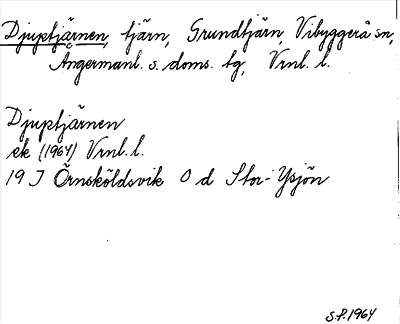 Djuptjärnen, tjärn, Grundtjärn, Vibyggerå sn,
Ångermanl. s. doms. tg, Vrnl. l.
Djuptjärnen
ek (1964) Vrnl. l.
19 J Örnsköldsvik O d Stor-Ysjön
S.P. 1964